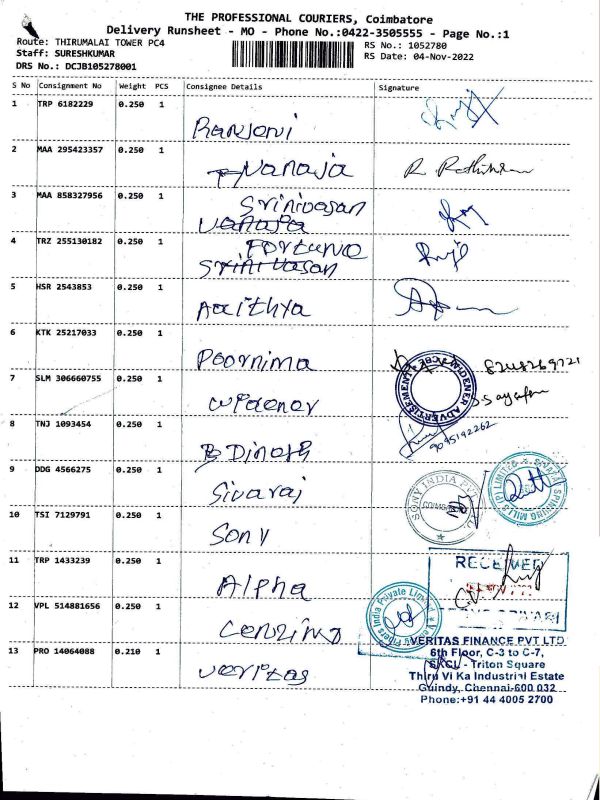 THE PROFESSIONAL COURIERS, Coimbatore
Delivery Runsheet - MO - Phone No.:0422-3505555 - Page No.:1
Route: THIRUMALAI TOWER PC4
Staff: SURESHKUMAR
DRS No.: DCJB105278001
RS No.: 1052780
RS Date: 04-Nov-2022
S No Consignment No Weight PCS Consignee Details Signature
1 TRP 6182229 0.250 1 Ranjani
2 MAA 295423357 0.250 1 Vanaja
3 MAA 858327956 0.250 1 Srinivasan
Vanaja
4 TRZ 255130182 0.250 1 Fortune
Srinivasan
5 HSR 2543853 0.250 1 Aaithya
6 KTK 25217033 0.250 1 Poornima
7 SLM 306660755 0.250 1 Widenar
8 TNJ 1093454 0.250 1 B Dinesh
9095192262
9 DDG 4566275 0.250 1 Sivaraj
10 TSI 7129791 0.250 1 Sony
11 TRP 1433239 0.250 1 Alpha
12 VPL 514881656 0.250 1
13 PRO 14064088 0.210 1 Veritas
WIDENER ADVERTISEMENT
SONY INDIA PVT
RECEIVED
VERITAS FINANCE PVT LTD
6th Floor, C-3 to C-7,
SKCL - Triton Square
Thiru Vi Ka Industrial Estate
Guindy, Chennai-600 032
Phone:+91 44 4005 2700